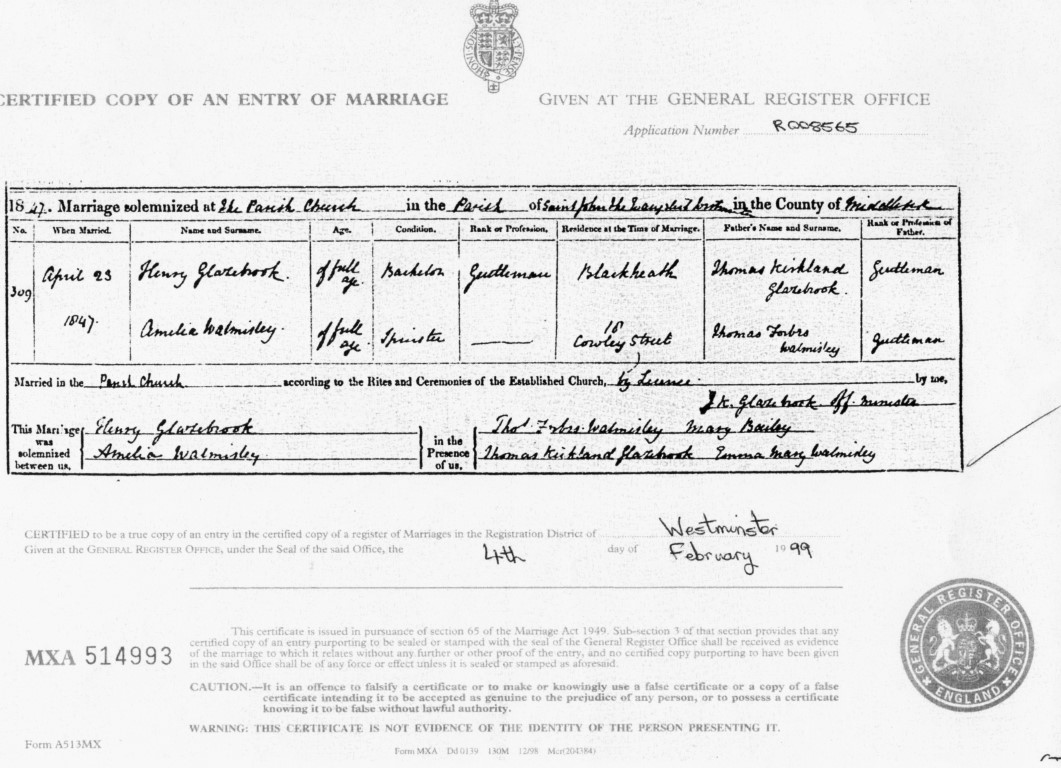 CERTIFIED COPY OF AN ENTRY OF MARRIAGE
GIVEN AT THE GENERAL REGISTER OFFICE
Application Number R008565
1847. Marriage solemnized at The Parish Church in the Parish of Saint John the Evangelist in the County of Middlesex
No. When Married. Name and Surname. Age. Condition. Rank or Profession. Residence at the Time of Marriage. Father's Name and Surname. Rank or Profession of Father.
309 April 23 1847. Henry Glazebrook. of full age. Bachelor Gentleman Blackheath Thomas Kirkland Glazebrook. Gentleman
Amelia Walmisley. of full age Spinster — 18 Cowley Street Thomas Forbes Walmisley Gentleman
Married in the Parish Church according to the Rites and Ceremonies of the Established Church, by Licence. by me,
J K. Glazebrook Off. minister
This Marriage was solemnized between us, Henry Glazebrook Amelia Walmisley.
in the Presence of us, Thos. Forbes Walmisley Mary Bailey
Thomas Kirkland Glazebrook Emma Mary Walmisley
CERTIFIED to be a true copy of an entry in the certified copy of a register of Marriages in the Registration District of Westminster
Given at the GENERAL REGISTER OFFICE, under the Seal of the said Office, the 4th day of February 1999
This certificate is issued in pursuance of section 65 of the Marriage Act 1949. Sub-section 3 of that section provides that any
certified copy of an entry purporting to be sealed or stamped with the seal of the General Register Office shall be received as evidence
of the marriage to which it relates without any further or other proof of the entry, and no certified copy purporting to have been given
in the said Office shall be of any force or effect unless it is sealed or stamped as aforesaid.
MXA 514993
CAUTION.—It is an offence to falsify a certificate or to make or knowingly use a false certificate or a copy of a false
certificate intending it to be accepted as genuine to the prejudice of any person, or to possess a certificate
knowing it to be false without lawful authority.
WARNING: THIS CERTIFICATE IS NOT EVIDENCE OF THE IDENTITY OF THE PERSON PRESENTING IT.
GENERAL REGISTER OFFICE
ENGLAND
Form A513MX
Form MXA Dd 0139 130M 12/98 Mcr(204384)